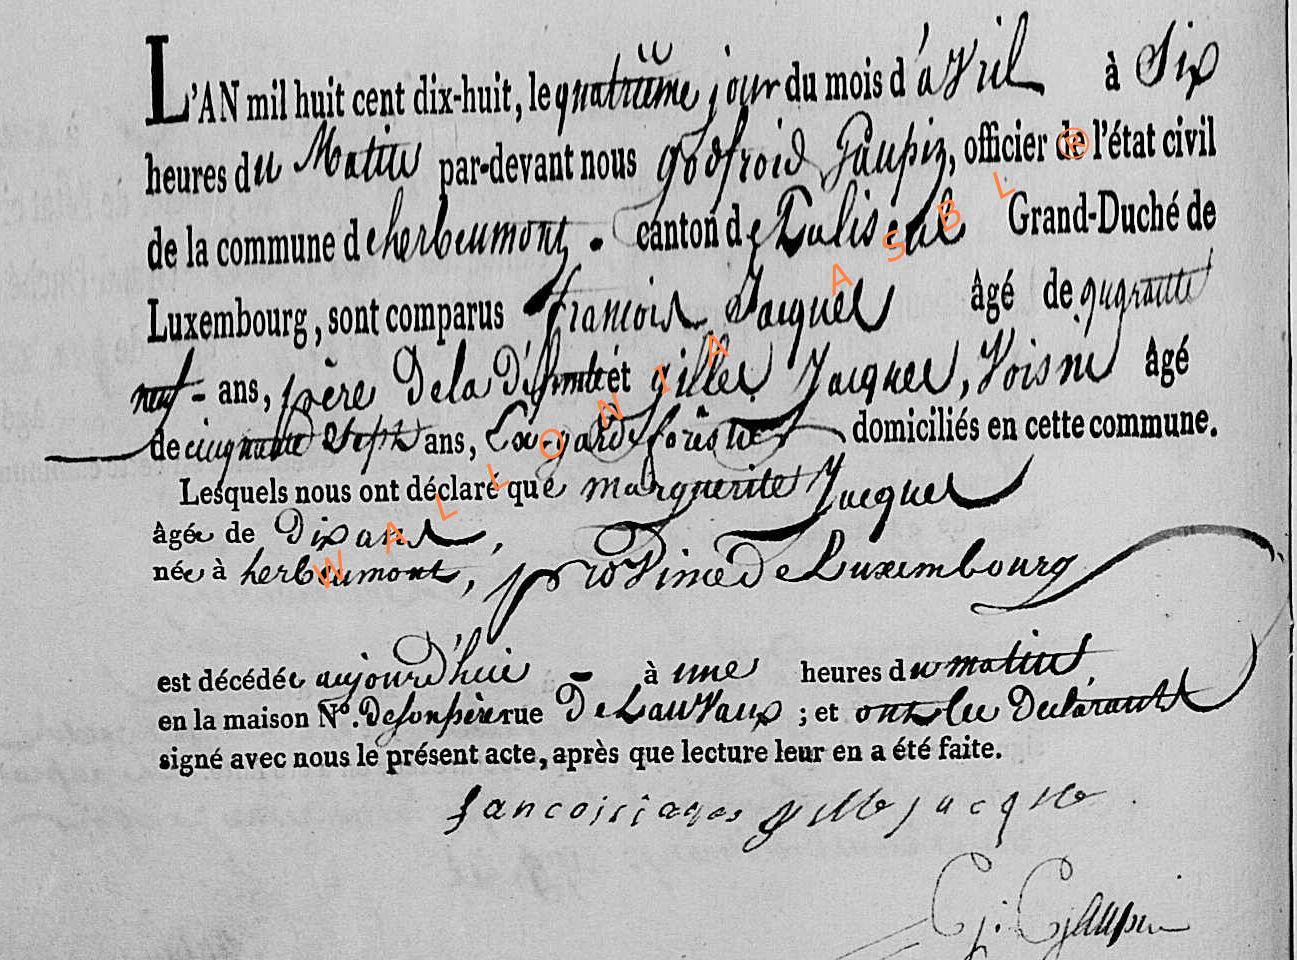 L'AN mil huit cent dix-huit, le quatrième jour du mois d'avril à Six
heures du Matin par-devant nous godfroid Gaupin, officier de l'état civil
de la commune d'herbeumont. canton de Paliseul Grand-Duché de
Luxembourg, sont comparus françois Jacques âgé de quarante
neuf - ans, père De la Défunte et gilles Jacques, Voisin âgé
de cinquante Sept ans, Ex-garde forêstier domiciliés en cette commune.
Lesquels nous ont déclaré que marguerite Jacques
âgée de Dix ans,
née à herbeumont, province De Luxembourg
est décédée aujourd'hui - à une heures du matin
en la maison Nº. De son père rue De Lauvaux ; et ont les Déclarants
signé avec nous le présent acte, après que lecture leur en a été faite.
fancois iaqes gille jacque
G: Gaupin
WALLONIA ASBL ®